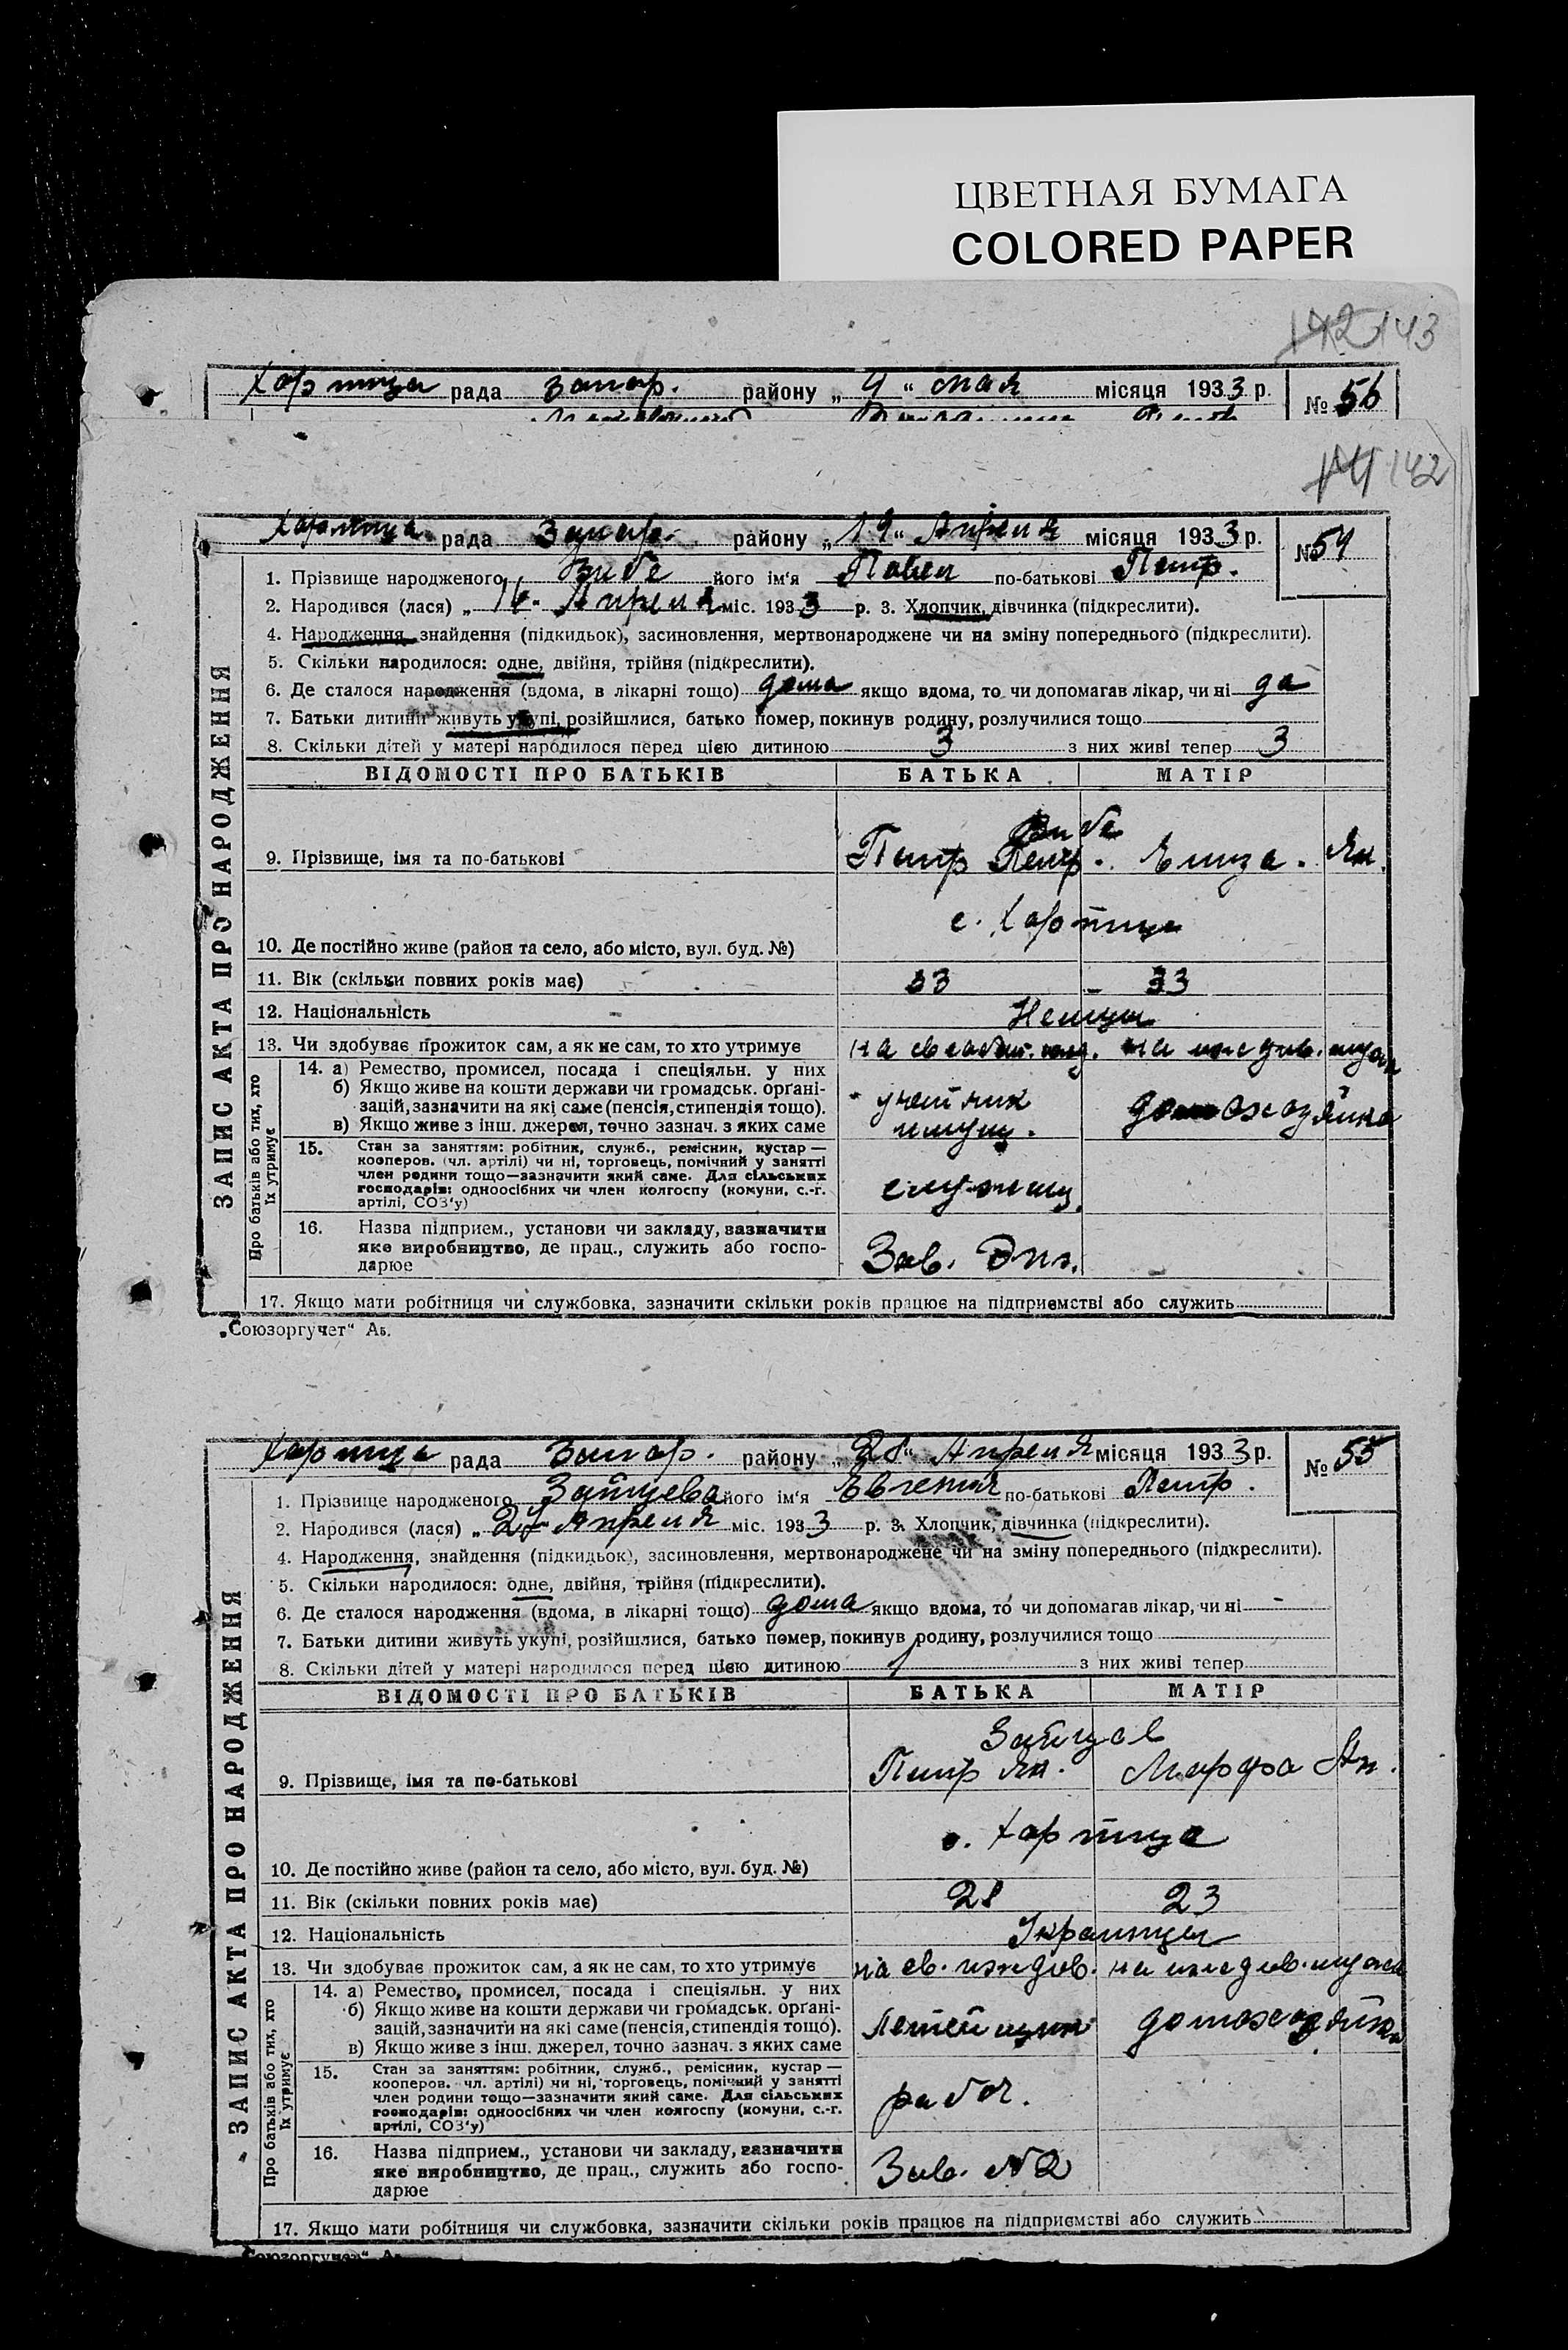 ЦВЕТНАЯ БУМАГА
COLORED PAPER
142 143
Хортица рада Запор. району „4“ мая місяця 1933 р. № 56
142
Хортица рада Запор. району „19“ Апреля місяця 1933 р. № 54
1. Прізвище народженого Вибе його ім‘я Павел по-батькові Петр.
2. Народився (лася) „16“ Апреля міс. 1933 р. 3. Хлопчик, дівчинка (підкреслити).
4. Народження, знайдення (підкидьок), засиновлення, мертвонароджене чи на зміну попереднього (підкреслити).
5. Скільки народилося: одне, двійня, трійня (підкреслити).
6. Де сталося народження (вдома, в лікарні тощо) дома якщо вдома, то чи допомагав лікар, чи ні да
7. Батьки дитини живуть укупі, розійшлися, батько помер, покинув родину, розлучилися тощо
8. Скільки дітей у матері народилося перед цією дитиною 3 з них живі тепер 3
ЗАПИС АКТА ПРО НАРОДЖЕННЯ
ВІДОМОСТІ ПРО БАТЬКІВ БАТЬКА МАТІР
Вибе
9. Прізвище, імя та по-батькові Петр Петр. Елиза. Як.
с. Хортица
10. Де постійно живе (район та село, або місто, вул. буд. №)
11. Вік (скільки повних років має) 33 33
12. Національність Немцы
13. Чи здобуває прожиток сам, а як не сам, то хто утримує на иждив. мужа
Про батьків або тих, хто їх утримує
14. а) Ремество, промисел, посада і спеціяльн. у них
б) Якщо живе на кошти держави чи громадськ. орґані-
зацій, зазначити на які саме (пенсія, стипендія тощо).
в) Якщо живе з інш. джерел, точно зазнач. з яких саме
домохозяйка
15. Стан за заняттям: робітник, служб., ремісник, кустар —
кооперов. (чл. артілі) чи ні, торговець, помічний у занятті
член родини тощо—зазначити який саме. Для сільських
господарів: одноосібних чи член колгоспу (комуни, с.-г.
артілі, СОЗ‘у)
служащ.
16. Назва підприєм., установи чи закладу, зазначити
яке виробництво, де прац., служить або госпо-
дарює
Зав.
17. Якщо мати робітниця чи службовка, зазначити скільки років працює на підприємстві або служить
„Союзоргучет“ Ав.
Хортица рада Запор. району „28“ Апреля місяця 1933 р. № 55
1. Прізвище народженого Зайцева його ім‘я Евгения по-батькові Петр.
2. Народився (лася) „27 Апреля міс. 1933 р. 3. Хлопчик, дівчинка (підкреслити).
4. Народження, знайдення (підкидьок), засиновлення, мертвонароджене чи на зміну попереднього (підкреслити).
5. Скільки народилося: одне, двійня, трійня (підкреслити).
6. Де сталося народження (вдома, в лікарні тощо) дома якщо вдома, то чи допомагав лікар, чи ні -
7. Батьки дитини живуть укупі, розійшлися, батько помер, покинув родину, розлучилися тощо
8. Скільки дітей у матері народилося перед цією дитиною 1 з них живі тепер
ЗАПИС АКТА ПРО НАРОДЖЕННЯ
ВІДОМОСТІ ПРО БАТЬКІВ БАТЬКА МАТІР
Зайцев
9. Прізвище, імя та по-батькові Петр Як. Марфа Ан.
с. Хортица
10. Де постійно живе (район та село, або місто, вул. буд. №)
11. Вік (скільки повних років має) 28 23
12. Національність Украинцы
13. Чи здобуває прожиток сам, а як не сам, то хто утримує на св. иждив. на иждив. мужа
Про батьків або тих, хто їх утримує
14. а) Ремество, промисел, посада і спеціяльн. у них
б) Якщо живе на кошти держави чи громадськ. орґані-
зацій, зазначити на які саме (пенсія, стипендія тощо).
в) Якщо живе з інш. джерел, точно зазнач. з яких саме
Летейщик домохозяйка
15. Стан за заняттям: робітник, служб., ремісник, кустар —
кооперов. чл. артілі) чи ні, торговець, помічний у занятті
член родини тощо—зазначити який саме. Для сільських
господарів: одноосібних чи член колгоспу (комуни, с.-г.
артілі, СОЗ‘у)
рабоч.
16. Назва підприєм., установи чи закладу, зазначити
яке виробництво, де прац., служить або госпо-
дарює
Зав. №2
17. Якщо мати робітниця чи службовка, зазначити скільки років працює на підприємстві або служить
„Союзоргучет“ Ав.